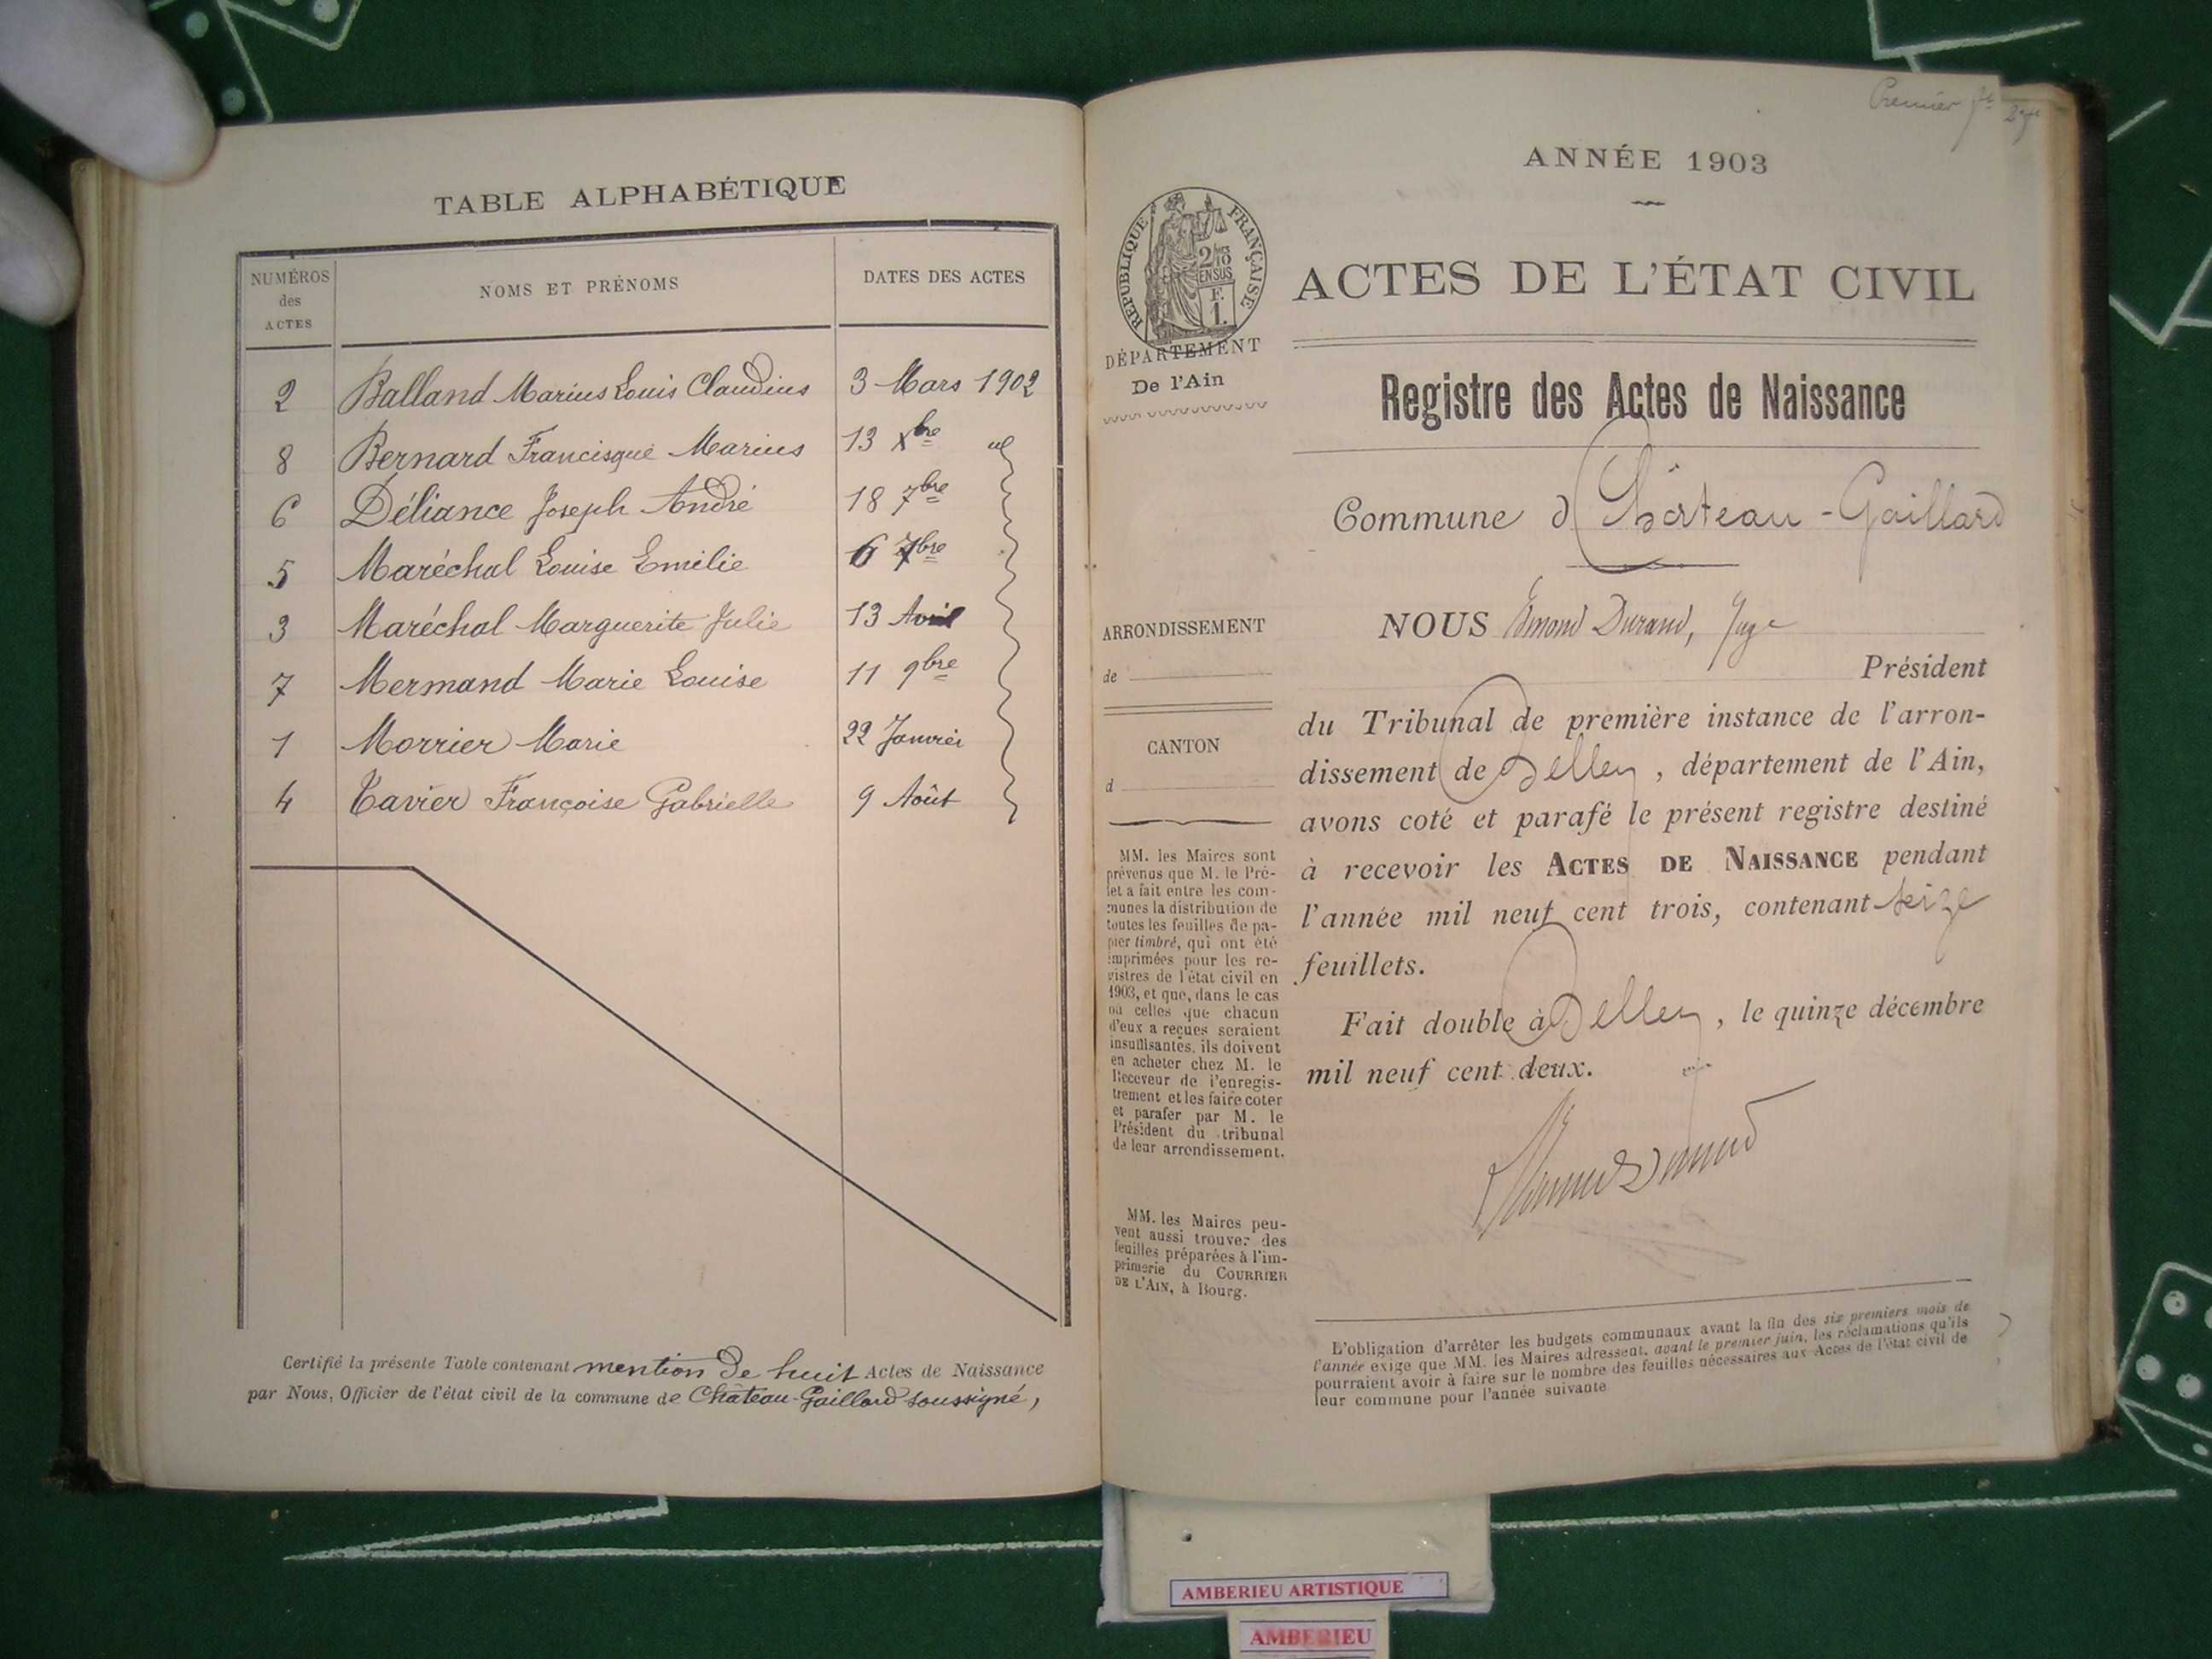 TABLE ALPHABÉTIQUE
NUMÉROS des ACTES
NOMS ET PRÉNOMS
DATES DES ACTES
2 Balland Marius Louis Claudius 3 Mars 1902
8 Bernard Francisque Marius 13 Xbre
6 Déliance Joseph André 18 7bre
5 Maréchal Louise Emilie 6 7bre
3 Maréchal Marguerite Julie 13 Avril
7 Mermand Marie Louise 11 9bre
1 Morrier Marie 22 Janvier
4 Tavier Françoise Gabrielle 9 Août
Certifié la présente Table contenant mention de huit Actes de Naissance
par Nous, Officier de l'état civil de la commune de Château-Gaillard soussigné,
Premier
ANNÉE 1903
RÉPUBLIQUE FRANÇAISE
ACTES DE L'ÉTAT CIVIL
DÉPARTEMENT
De l'Ain
Registre des Actes de Naissance
Commune d Château-Gaillard
ARRONDISSEMENT
de
CANTON
d
NOUS Emond Durand, Juge
Président
du Tribunal de première instance de l'arron-
dissement de Belley, département de l'Ain,
avons coté et parafé le présent registre destiné
à recevoir les ACTES DE NAISSANCE pendant
l'année mil neuf cent trois, contenant seize
feuillets.
Fait double à Belley, le quinze décembre
mil neuf cent deux.
MM. les Maires sont
prévenus que M. le Pré-
fet a fait entre les com-
munes la distribution de
toutes les feuilles de pa-
pier timbré, qui ont été
imprimées pour les re-
gistres de l'état civil en
1903, et que, dans le cas
où celles que chacun
d'eux a reçues seraient
insuffisantes, ils doivent
en acheter chez M. le
Receveur de l'enregis-
trement et les faire coter
et parafer par M. le
Président du tribunal
de leur arrondissement.
MM. les Maires peu-
vent aussi trouver des
feuilles préparées à l'im-
primerie du COURRIER
DE L'AIN, à Bourg.
L'obligation d'arrêter les budgets communaux avant la fin des six premiers mois de
l'année exige que MM. les Maires adressent, avant le premier juin, les réclamations qu'ils
pourraient avoir à faire sur le nombre des feuilles nécessaires aux Actes de l'état civil de
leur commune pour l'année suivante
AMBERIEU ARTISTIQUE
AMBERIEU